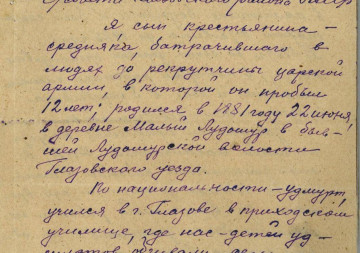 района УАССР
Я сын крестьянина –
средняка, батрачившего в
людях за рекрутчины царской
армии, в которой он пробыл
12 лет; родился в 1881 году 22 июня,
в деревне Малый Лудошур в быв-
шей Лудошурской волости
Глазовского уезда.
По национальности – удмурт,
учился в г. Глазове в приходском
училище, где нас – детей уд-